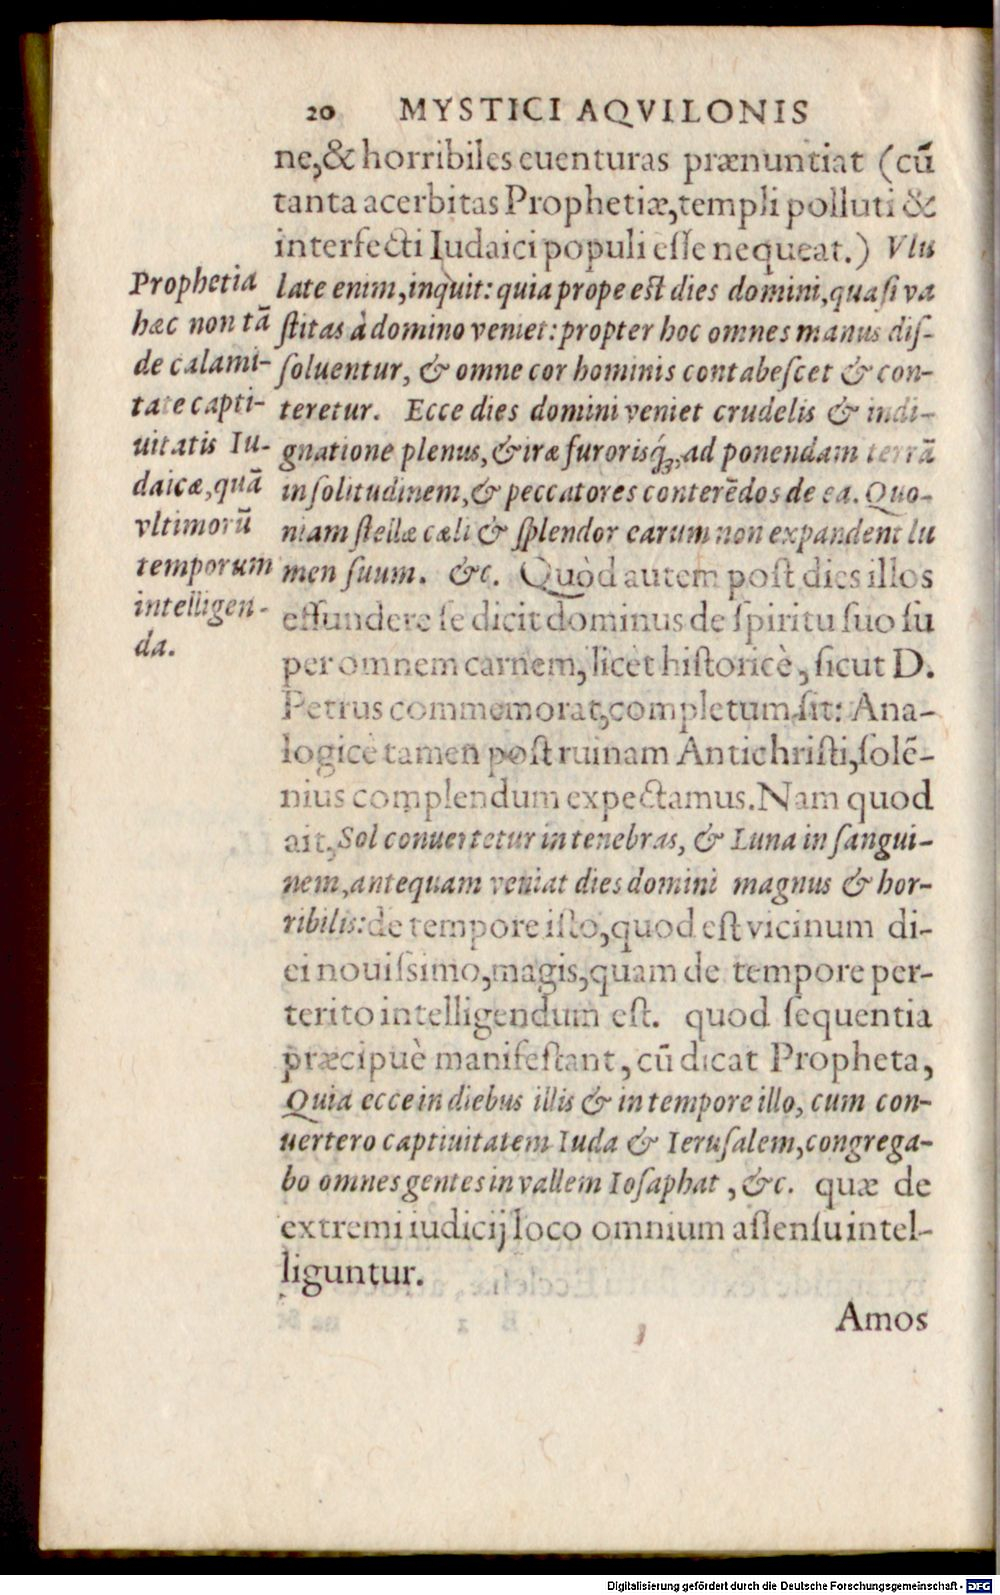 20 MYSTICI AQVILONIS
ne, & horribiles euenturas prænuntiat (cū
tanta acerbitas Prophetiæ, templi polluti &
interfecti Iudaici populi eſſe nequeat.) Vlu
late enim, inquit: quia prope est dies domini, quaſi va
ſtitas à domino veniet: propter hoc omnes manus diſ-
ſoluentur, & omne cor hominis contabeſcet & con-
teretur. Ecce dies domini veniet crudelis & indi-
gnatione plenus, & iræ furorisq́;, ad ponendam terrā
in ſolitudinem, & peccatores conterēdos de ea. Quo-
niam ſtellæ cæli & ſplendor earum non expandent lu
men ſuum. &c. Quòd autem poſt dies illos
effundere ſe dicit dominus de ſpiritu ſuo ſu
per omnem carnem, licèt hiſtoricè, ſicut D.
Petrus commemorat, completum ſit: Ana-
logicè tamen poſt ruinam Antichriſti, ſolē-
nius complendum expectamus. Nam quod
ait, Sol conuertetur in tenebras, & Luna in ſangui-
nem, antequam veniat dies domini magnus & hor-
ribilis: de tempore iſto, quod eſt vicinum di-
ei nouiſsimo, magis, quam de tempore per-
terito intelligendum eſt. quod ſequentia
præcipuè manifeſtant, cū dicat Propheta,
Quia ecce in diebus illis & in tempore illo, cum con-
uertero captiuitatem Iuda & Ieruſalem, congrega-
bo omnes gentes in vallem Ioſaphat, &c. quæ de
extremi iudicij loco omnium aſſenſu intel-
liguntur.
Amos
Prophetia
hæc non tā
de calami-
tate capti-
uitatis Iu-
daicæ, quā
vltimorū
temporum
intelligen-
da.
Digitalisierung gefördert durch die Deutsche Forschungsgemeinschaft - DFG